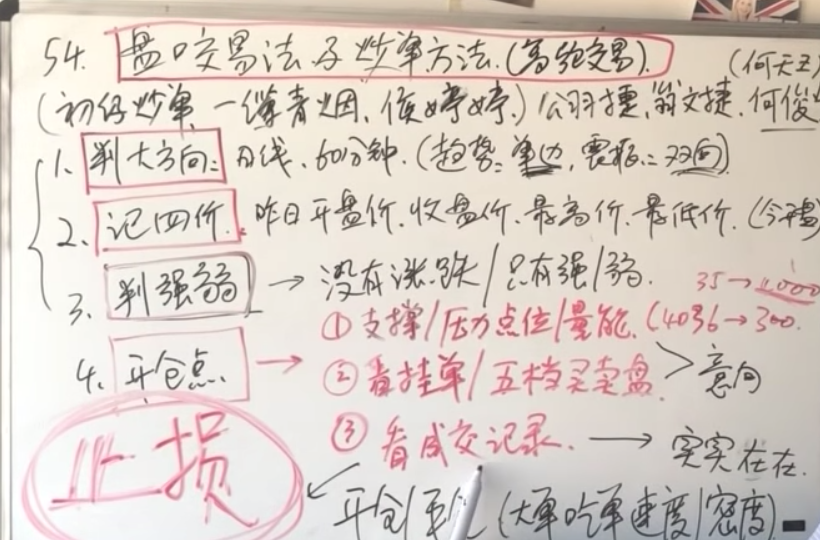 54. 盘口交易法及炒单方法.(高频交易). (何天
(初级炒单, 一缕青烟, 侯婷婷.) 公羽捷, 翁文捷, 何俊
1. 判大方向: 日线、60分钟. (趋势: 单边, 震荡: 双向)
2、记四价. 昨日开盘价. 收盘价、最高价、最低价. (今开盘
3. 判强弱 → 没有涨跌/只有强/弱. 35→1000
① 支撑/压力点位/量能. (4036→300.
4. 开仓点. → ② 看挂单/五档买卖盘. > 意向
③ 看成交记录. → 实实在在.
止损 ← 开仓/平 (大单吃单速度/密度)